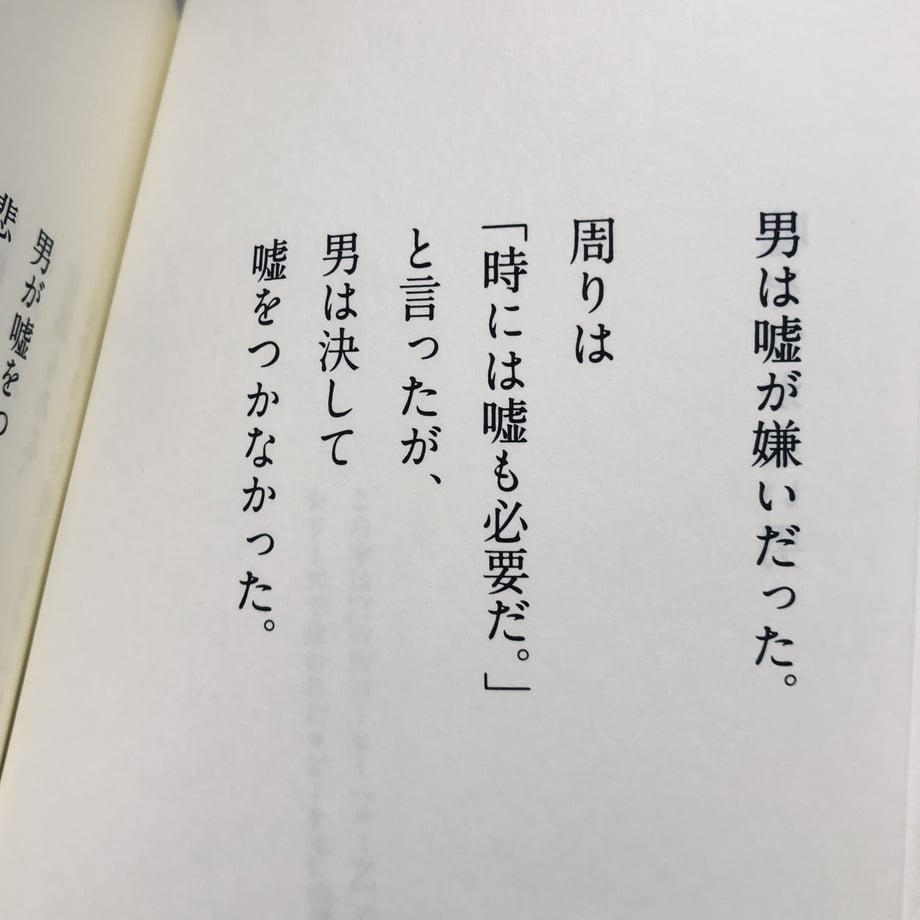 男は嘘が嫌いだった。
周りは
「時には嘘も必要だ。」
と言ったが、
男は決して
嘘をつかなかった。
男が嘘をつ
悲